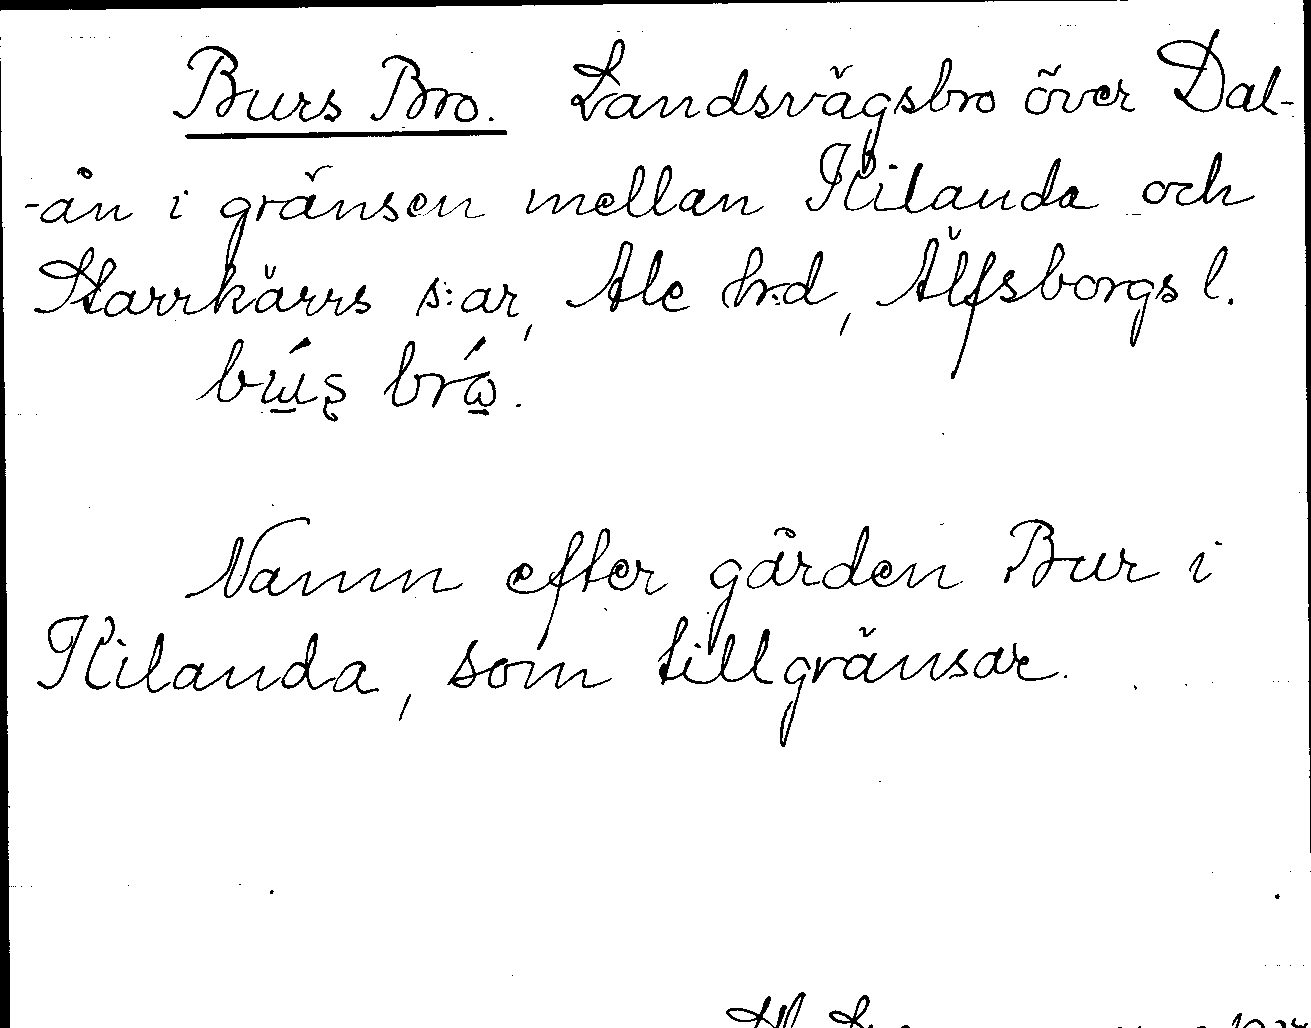 Burs Bro. Landsvägsbro över Dal-
-ån i gränsen mellan Kilanda och
Starrkärrs s:ar, Ale hrd, Älfsborgs l.
Namn efter gården Bur i
Kilanda, som tillgränsar.